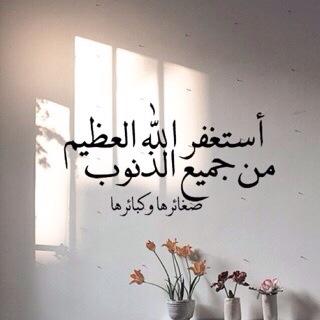 أستغفر الله العظيم
من جميع الذنوب
صغائرها وكبائرها